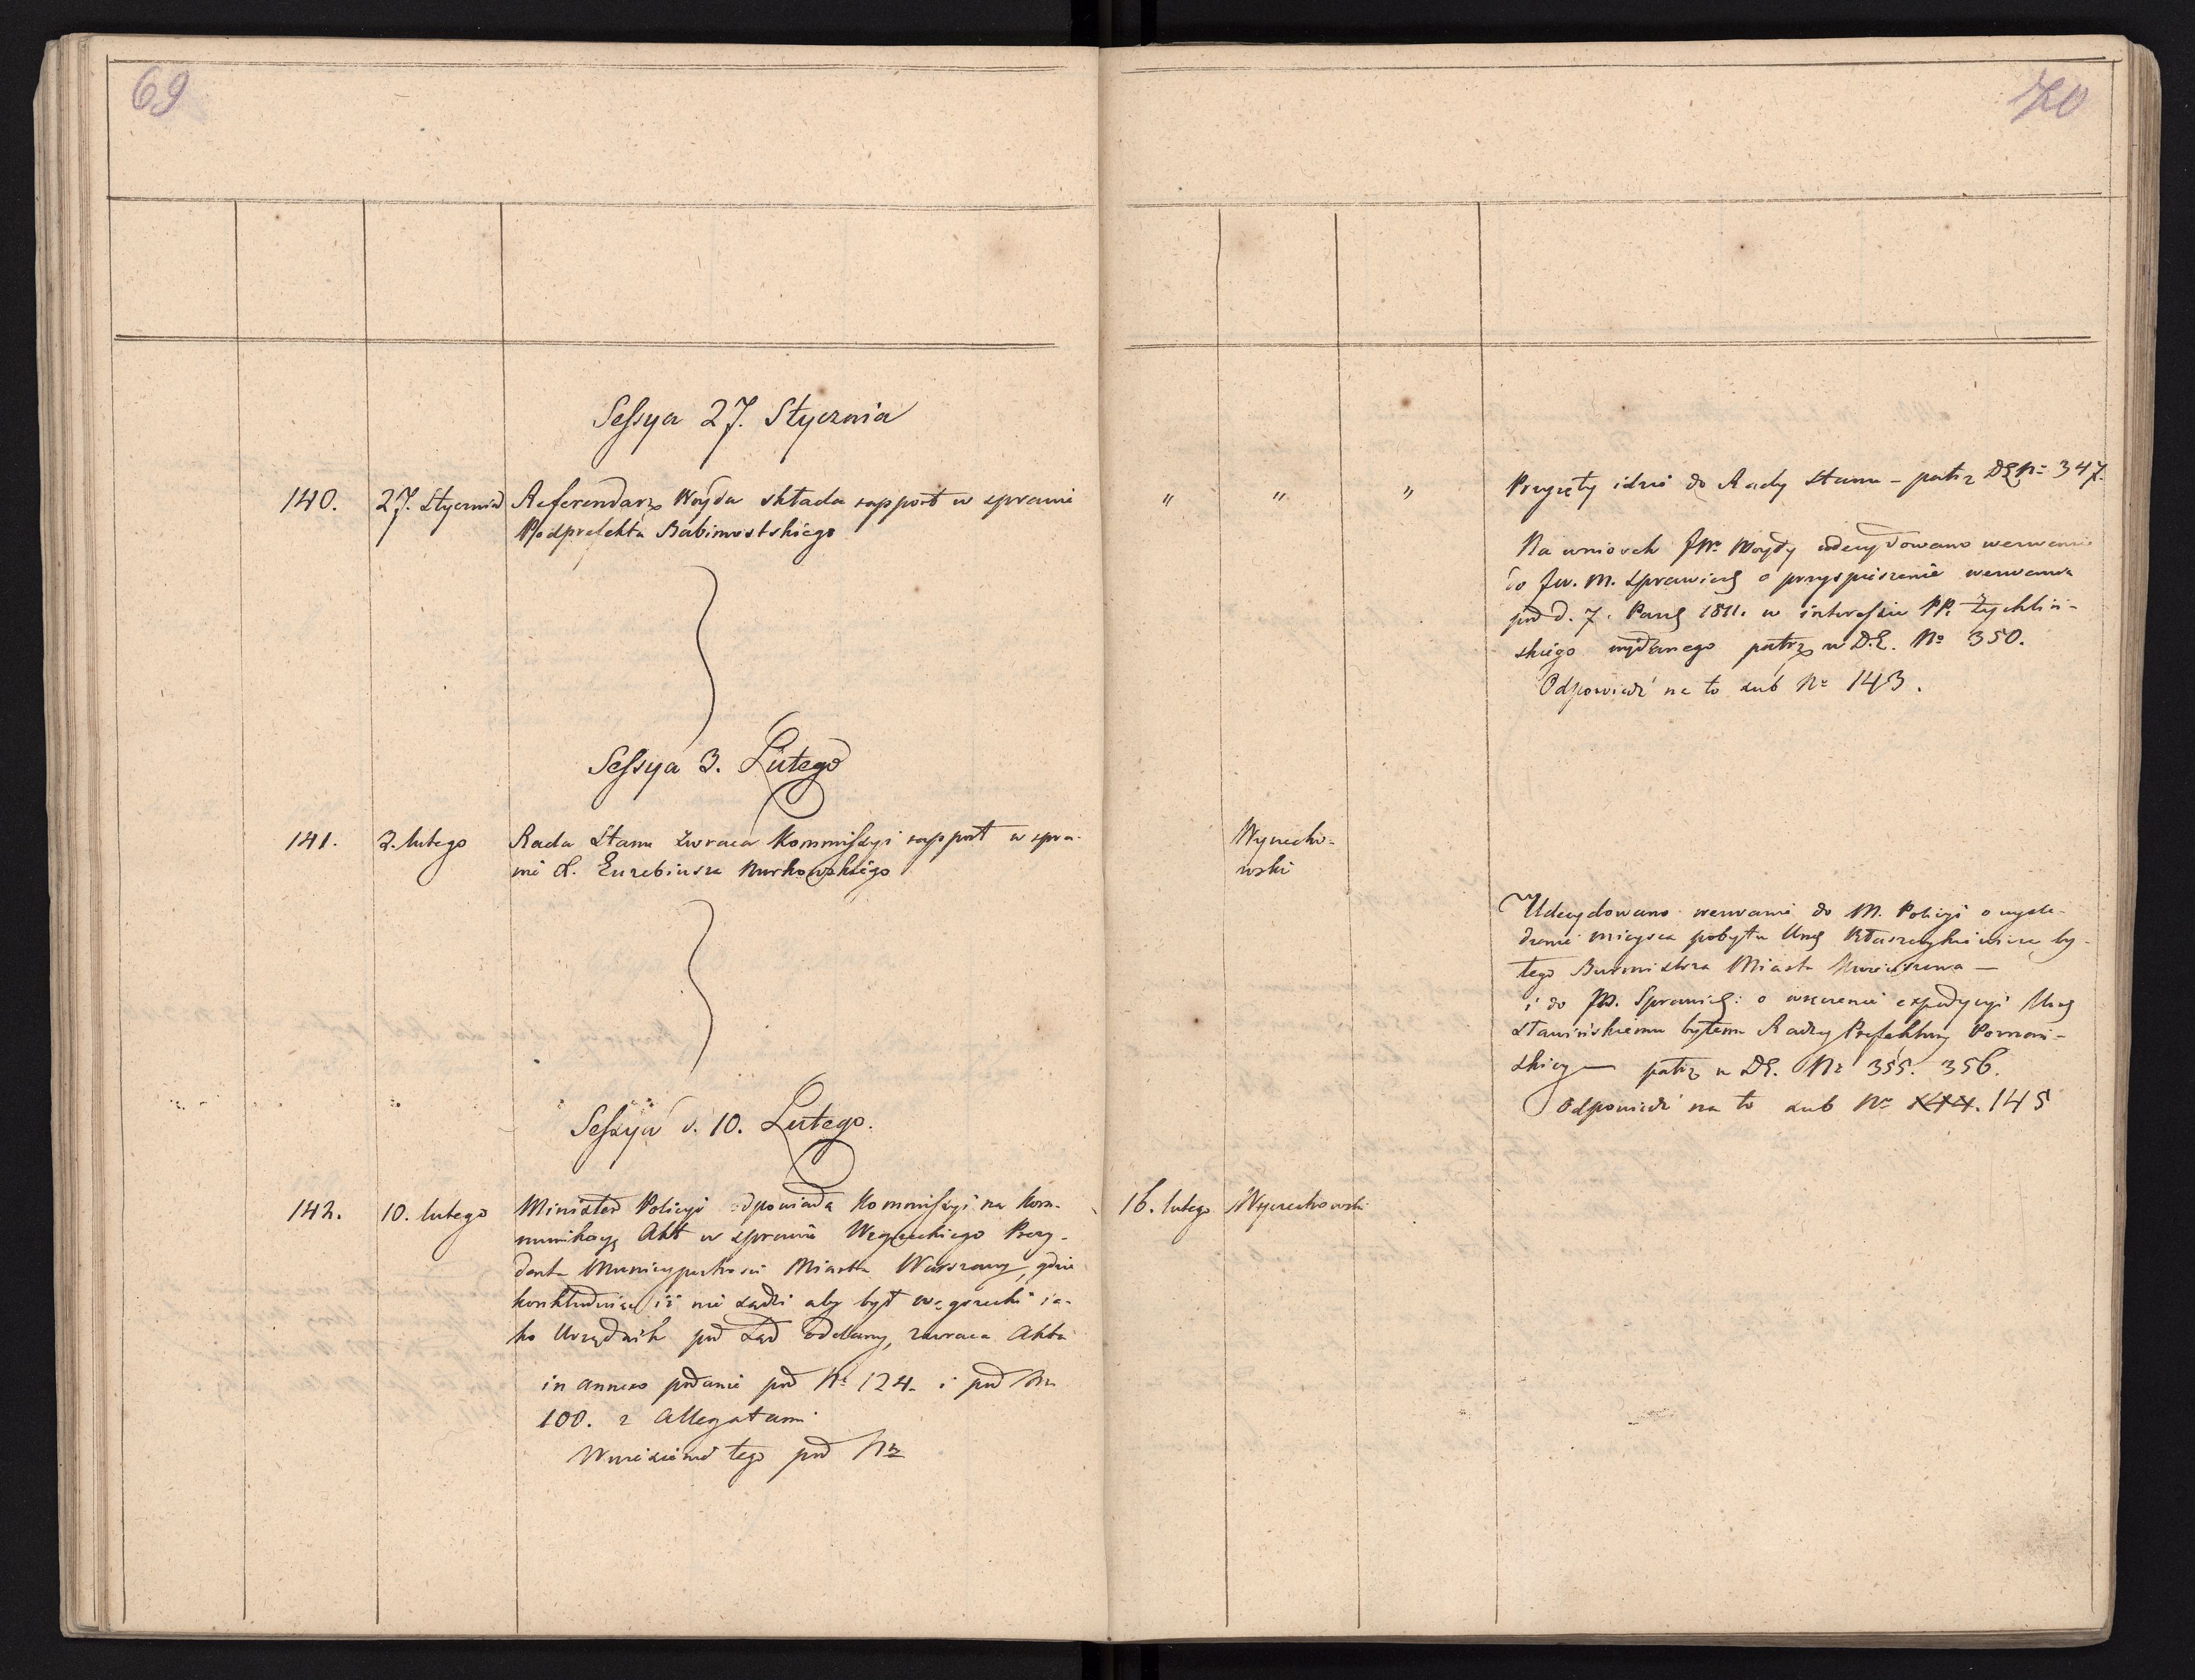 69
Sessya 27. Stycznia
140. 27. Stycznia Referendarz Woyda składa rapport w sprawie
Podprefekta Babimostskiego
Sessya 3. Lutego
141. 3. lutego Rada Stanu zwraca Kommissyi rapport w spra-
wie X. Euzebiusza Kurkowskiego
Sessya d. 10. Lutego.
142. 10. lutego Minister Policyi odpowiada Kommissyi na kom-
munikacyę Akt w sprawie Węgrzeckiego Prezy-
denta Municypalności Miasta Warszawy, gdzie
konkludując iż nie sądzi aby był Węgrzecki ia-
ko Urzędnik pod Sąd oddany, zwraca Akta
in annexo podanie pod Nr 124. i pod Nr
100. z Allegatami
Wniesione tego pod Nr
70
" " " Przyięty idzie do Rady Stanu - patrz DE Nr 347.
Na wniosek JW. Woydy udecydowano wezwanie
do JW. M. Sprawiedl o przyspieszenie wezwania
pod d. 7. Paźd 1811. w interessie PP. Żychliń-
skiego wydanego patrz w D.E. No 350.
Odpowiedź na to sub Nr 143.
Wyczecho-
wski
Udecydowano wezwanie do M. Policyi o wyśle-
dzenie mieysca pobytu Ung by-
łego Burmistrza Miasta
i do JW. Sprawiedl: o expedycyi
Stawińskiemu byłemu Radzcy Prefektury Poznań-
skiey — patrz w DE. Nr 355. 356.
Odpowiedź na to sub Nr 144. 145
16. lutego Wyczechowski